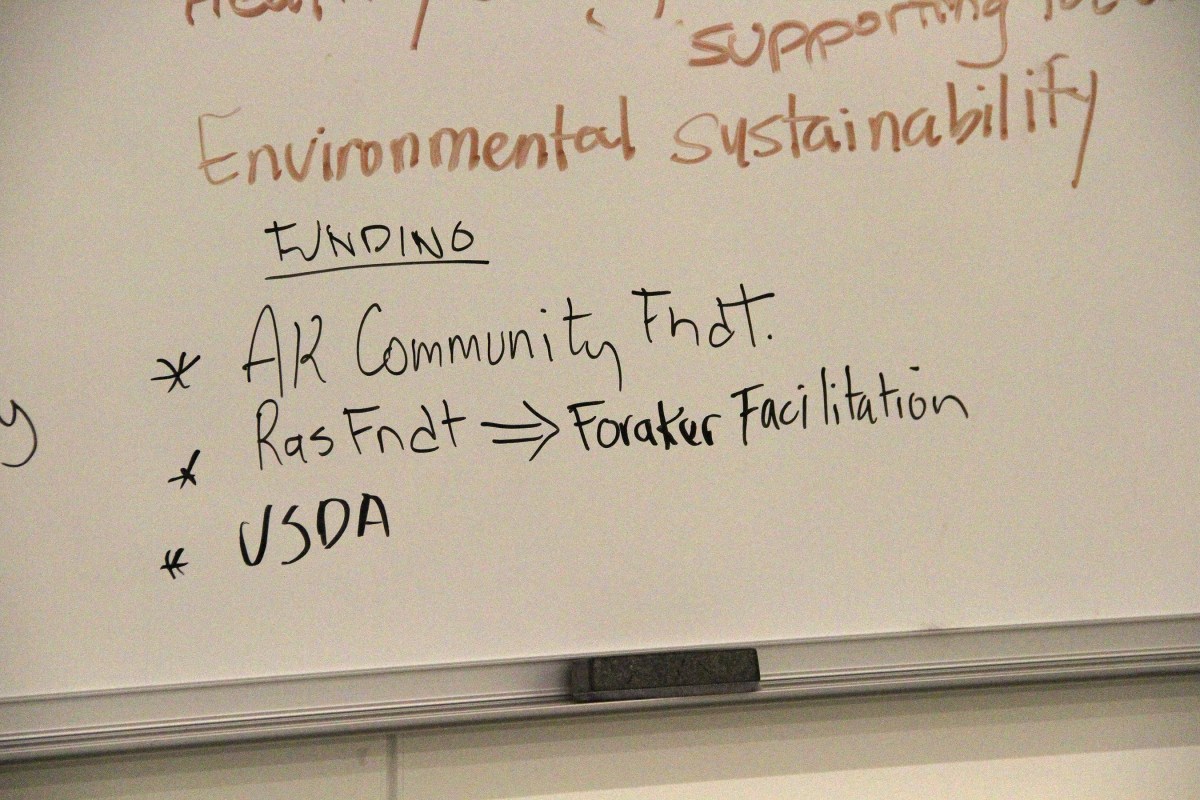 supporting
Environmental sustainability
FUNDING
* AK Community Fndt.
* Ras Fndt ⇒ Foraker Facilitation
* USDA
y